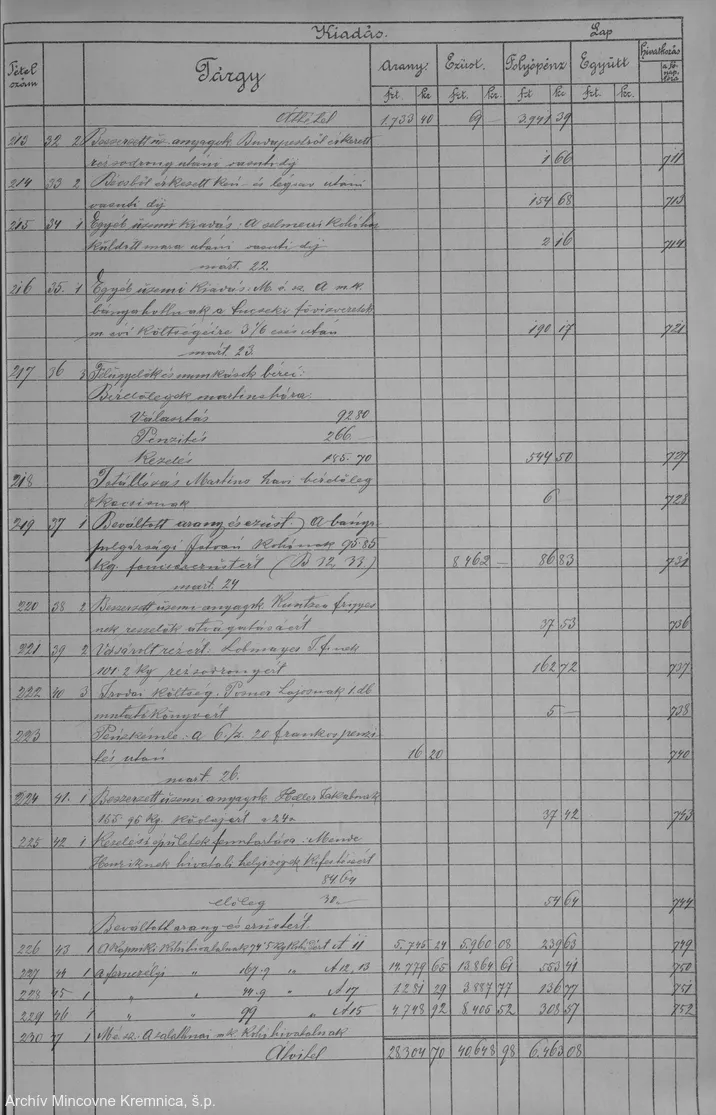 Kiadás. Lap
Tétel szám Tárgy Arany. Ezüst. Folyópénz Együtt Hivatkozás a főnaplóra
frt. kr frt. kr. frt kr frt. kr.
Áthitel 1.733 40 69 — 3.941 39
213 32 2 Beszerzett ü. anyagok Budapestről érkezett
rézsodrony utáni vasuti díj 1 66 711
214 33 2 Bécsből érkezett kén- és légsav utáni
vasuti díj 154 68 713
215 34 1 Egyéb üzemi kiadás. A selmeczi Kohóhoz
küldött mara utáni vasuti díj 2 16 714
márt. 22.
216 35. 1 Egyéb üzemi kiadás. M. é. sz. A m.k.
költségeire 3% esés után 190 17 721
márt. 23.
217 36 3 Felügyelők és munkások bérei:
Bérelőlegek martius hóra.
Választás 92 80
Pénzítés 266 —
Kezelés 185.70 544 50 727
218 Martius havi bérelőleg
6 — 728
219 37 1 Beváltott arany és ezüst. A bánya
polgársági István Kohónak 95.85
kg. ezüstért (B 32, 33) 8 462 — 86 83 731
mart. 24
220 38 2 Beszerzett üzemi anyagok
nek reszelők átvágatásáért 37 53 736
221 39 2 Vásárolt rézért. Lobmayer T. f. nek
101.2 kg rézsodronyért 162 72 737
222 40 3 Irodai költség. Posner Lajosnak 1. db
mutatókönyvért 5 — 738
223 Pénzkémle. a 6./z. 20 frankos pénzí
tés után 16 20 740
mart. 26.
224 41. 1 Beszerzett üzemi anyagok. Heller Jakabnak
155.95 kg. kőolajért a 24 37 42 743
225 42 1 Kezelési épületek fenntartása. Mende
Henriknek hivatali helyiségek kifestéséért
84 64
előleg 30.— 54 64 744
Beváltott arany és ezüstért.
226 43 1 A kapniki Kohóhivatalnak 74.5 kg A 11 5.745 24 5.960 08 239 63 749
227 44 1 a fernezelyi " 167.9 " A 12, 13 14.779 65 13.864 61 553 41 750
228 45 1 " " 44.9 " A 17 1281 29 3887 77 136 77 751
229 46 1 " " 99 " A 15 4.748 92 8.405 52 308 57 752
230 47 1 M. é. sz. A zalathnai m.k. Kohóhivatalnak
Átvitel 28304 70 40,648 98 6.463 08
Archív Mincovne Kremnica, š.p.